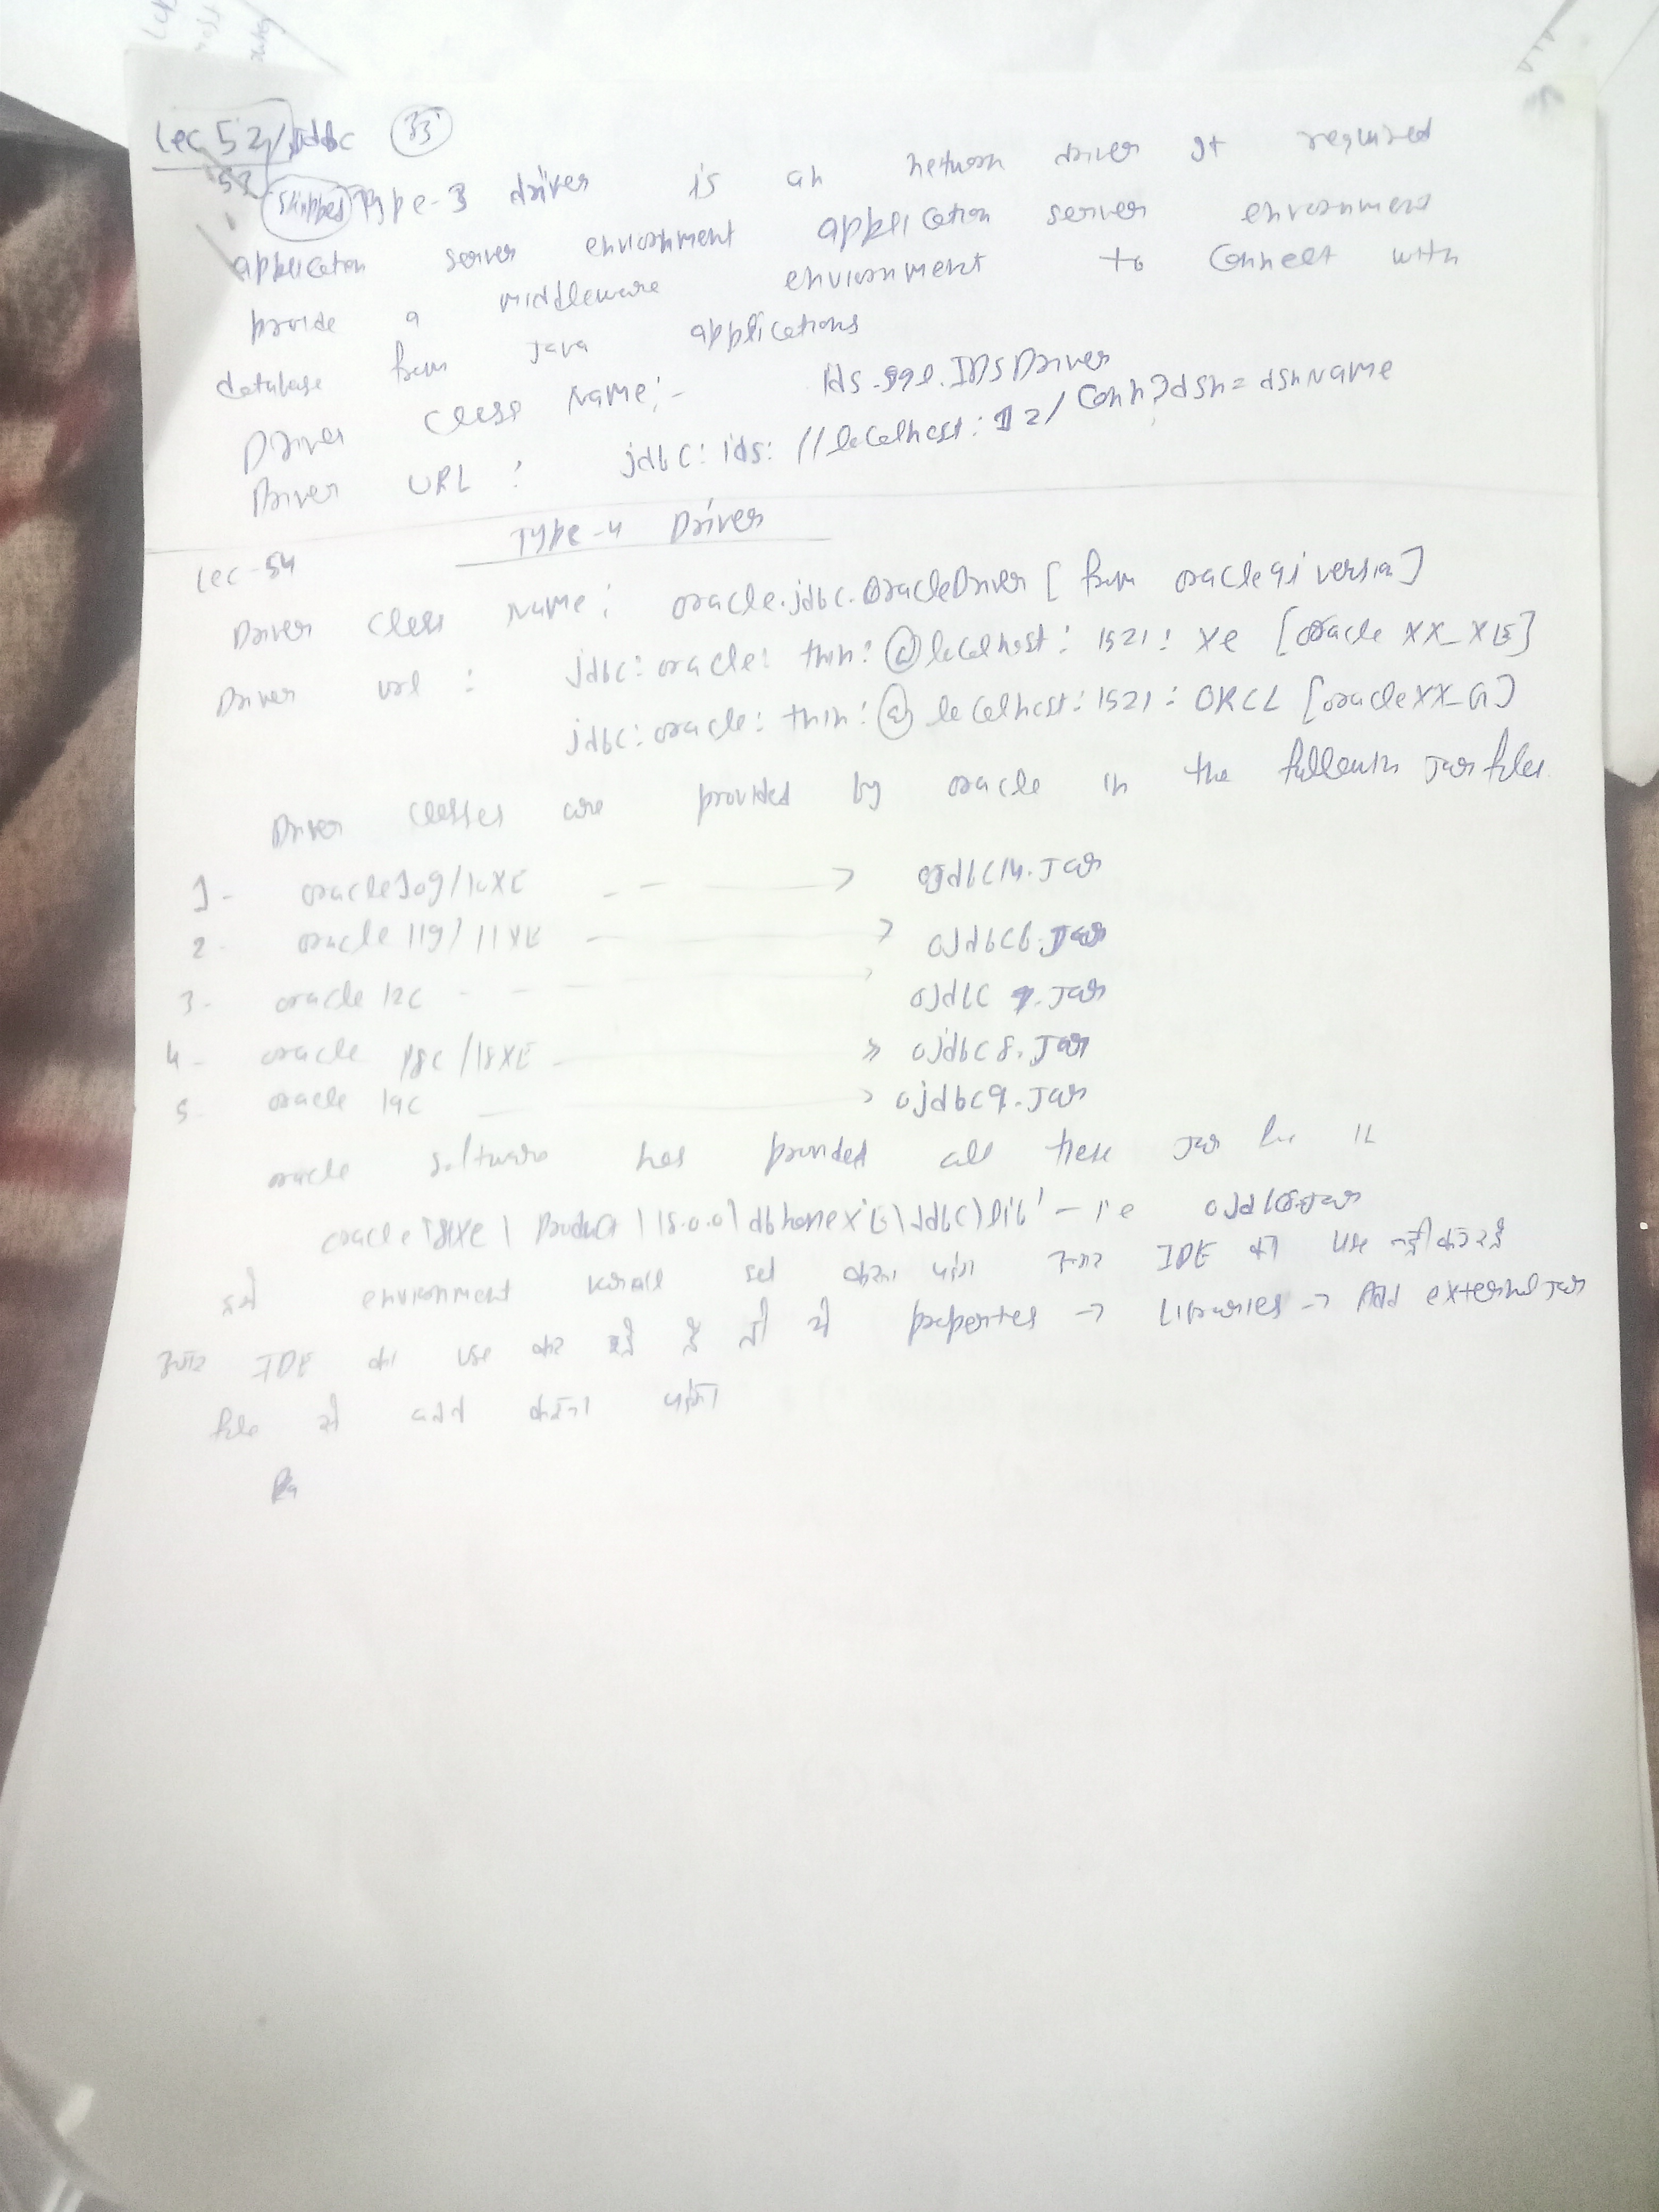 Lec 52/Jdbc 33
53 Skipped Type-3 driver is an network driver It required
application server enviornment application server enviornment
provide a middleware enviornment to connect with
database from Java applications
Driver class Name:- ids.sql.IDSDriver
Driver URL : jdbc:ids://localhost:12/conn?dsn=dsnName
Lec-54 Type-4 Driver
Driver Class Name: oracle.jdbc.OracleDriver [from oracle9i version]
Driver url : jdbc:oracle:thin:@localhost:1521:xe [oracle XX_XE]
jdbc:oracle:thin:@localhost:1521:ORCL [oracleXX_G]
Driver classes are provided by oracle in the Jar files
1- oracle10g/10XE -- → ojdbc14.Jar
2- oracle 11g/11XE → ojdbc6.Jar
3- oracle 12c -- → ojdbc 7.Jar
4- oracle 18c/18XE → ojdbc8.Jar
5- oracle 19c → ojdbc9.Jar
oracle software has provided all these Jar in
Product dbhomeXE\Jdbc\lib - i.e
इसे environment set करना पड़ेगा अगर IDE का use नहीं कर रहे
अगर IDE का use कर रहे है तो properties → Libraries → Add external Jar
file से add करना पड़ेगा